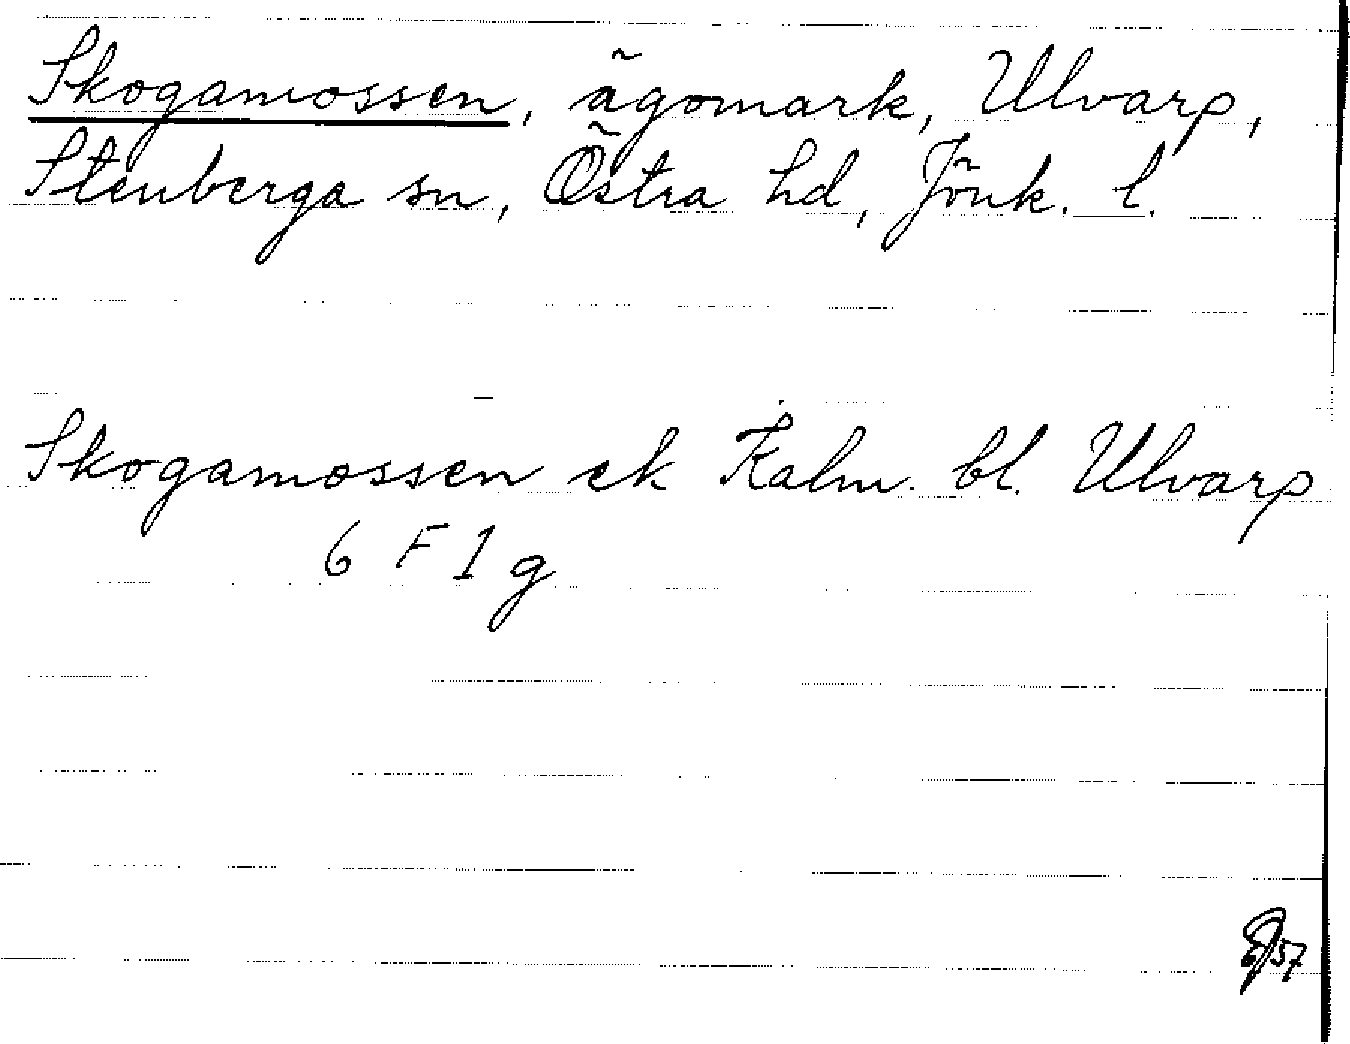 Skogamossen, ägomark, Ulvarp,
Stenberga sn, Östra hd, Jönk. l.
Skogamossen ek Kalm. bl. Ulvarp
6 F 1 g
57